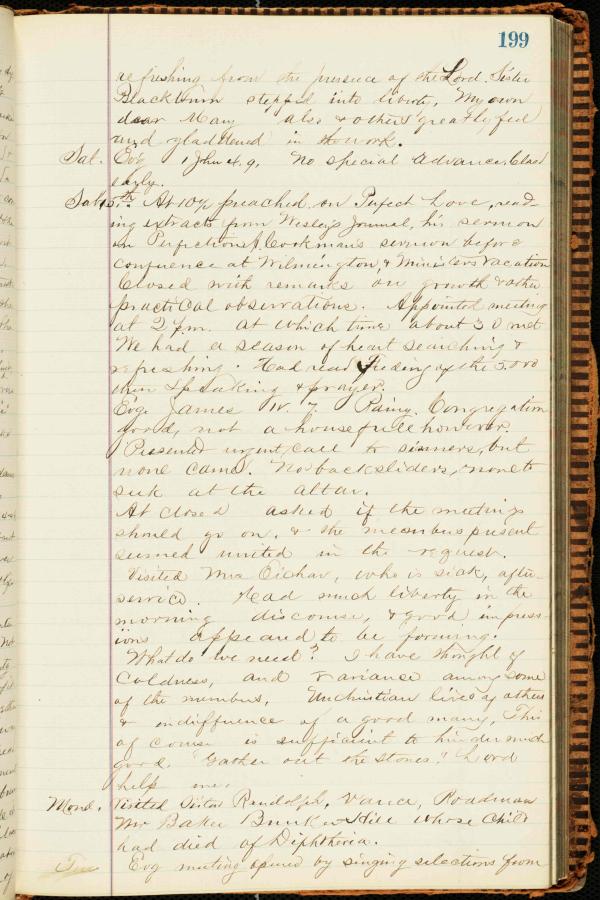 199
refreshing from the presence of the Lord. Sister
Blackburn stepped into liberty. My own
dear Mary also & others greatly fed
and gladdened in the work.
Sat. Evg 1 John 4. 9. No special advance. Closed
early.
Sab. 5th. At 10½ preached on Perfect Love, read-
ing extracts from Wesley's Journal, his sermon
on Perfection & Cookman's sermon before
conference at Wilmington, & Ministers Vacation
Closed with remarks on growth & other
practical observations. Appointed meeting
at 2 p.m. at which time about 30 met
We had a season of heart searching &
refreshing. Had read Feeding of the 5.000
then speaking & prayer.
Evg. James IV. 7 Rainy. Congregation
good, not a housefull however.
Presented urgent call to sinners, but
none came. No backsliders, none to
seek at the altar.
At close I asked if the meetings
should go on, & the members present
seemed united in the request.
Visited Mrs who is sick, after
service. Had much liberty in the
morning discourse, & good impress-
ions appeared to be forming.
What do we need? I have thought of
Coldness, and variance among some
of the members, Unchristian lives of others
& indifference of a good many, This
of course is sufficient to hinder much
good. "Gather out the stones." Lord
help me.
Mond. Visited Sister Rudolph, Vance, Roadman
Mr Baker Bunker Hill whose child
had died of Diphtheria.
Tue Evg meeting opened by singing selections from